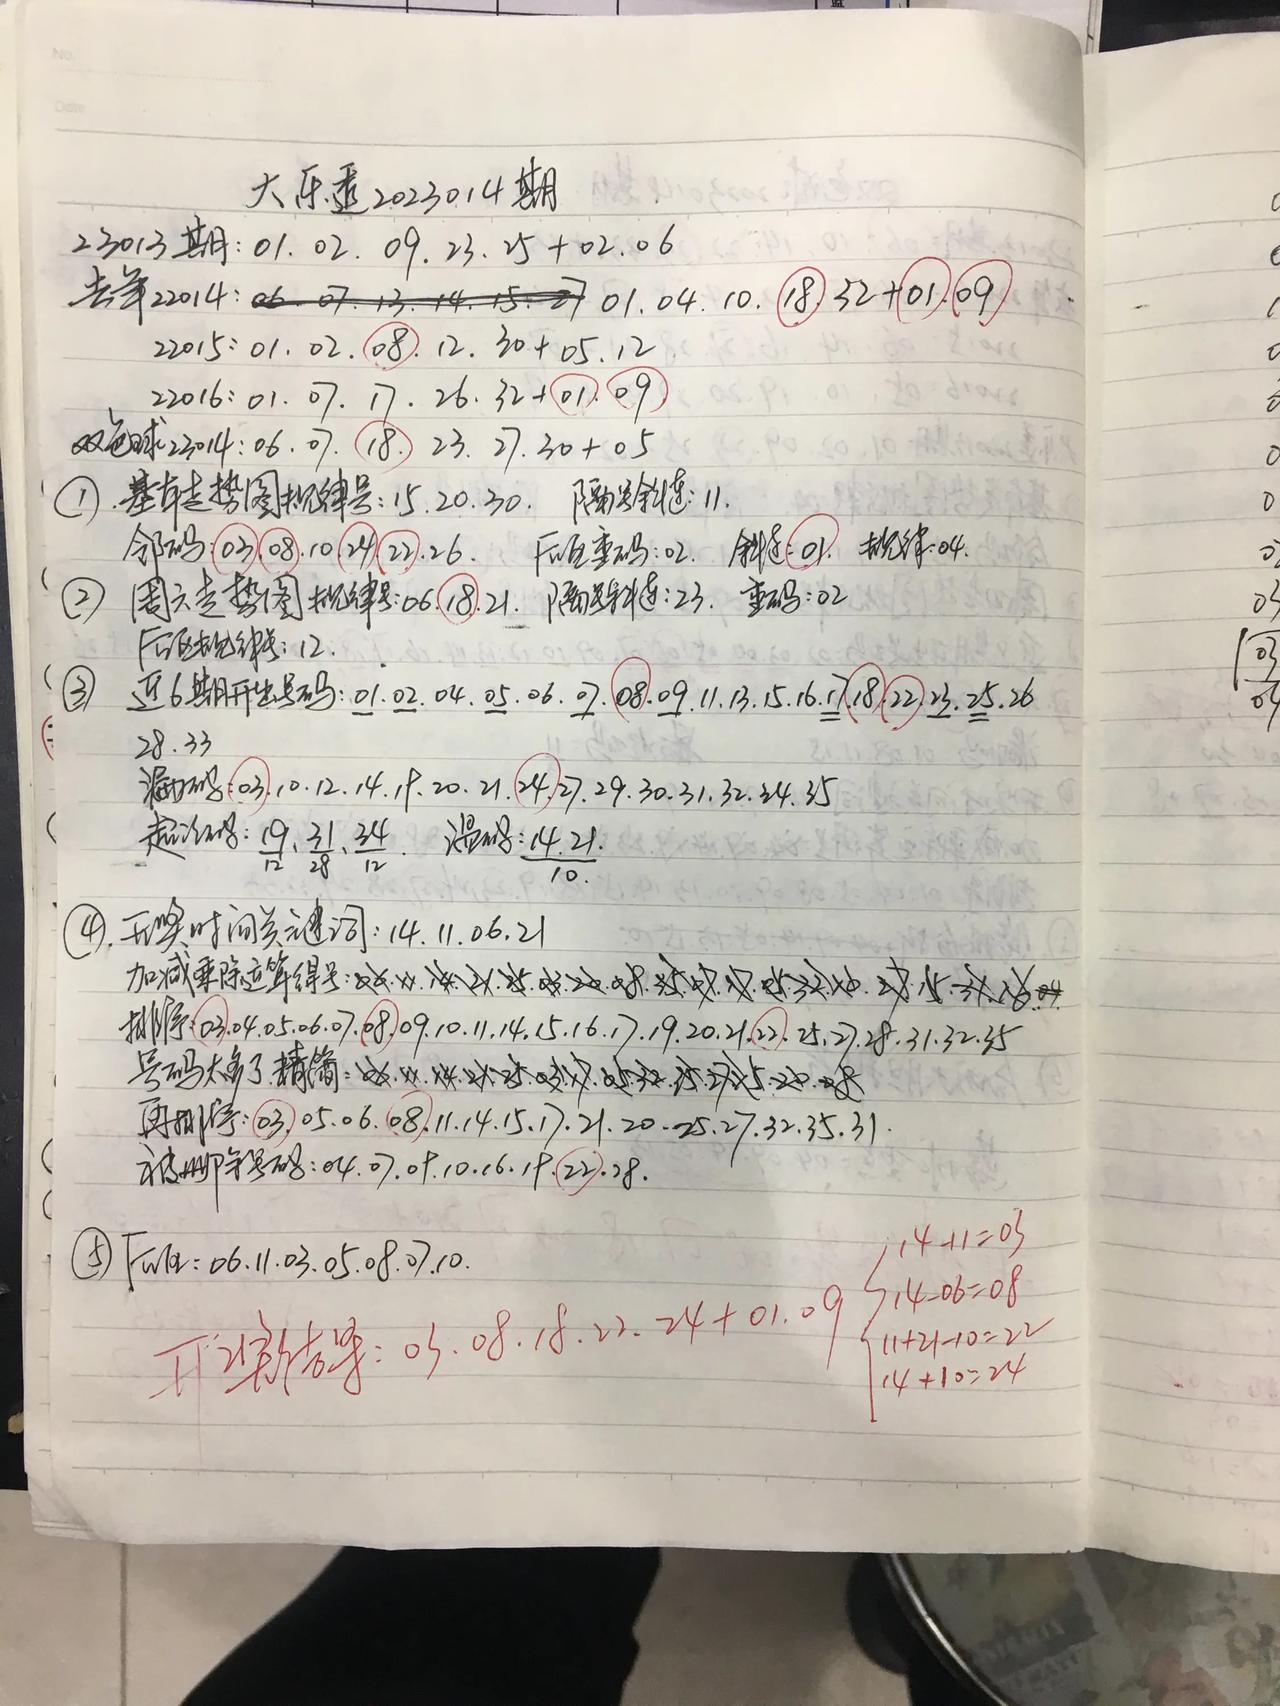 No.
Date
大乐透2023014期
23013期:01.02.09.23.25+02.06
去年22014:06.07.13.14.15.27 01.04.10.18.32+01.09
22015:01.02.08.12.30+05.12
22016:01.07.17.26.32+01.09
双色球23014:06.07.18.23.27.30+05
①.基本走势图规律号:15.20.30. 隔号斜连:11.
邻码:03.08.10.24.22.26. 后区重码:02. 斜连:01. 规律:04.
② 周六走势图规律号:06.18.21. 隔号斜连:23. 重码:02
后区规律号:12.
③ 近6期开出号码:01.02.04.05.06.07.08.09.11.13.15.16.17.18.22.23.25.26
28.33
漏码:03.10.12.14.19.20.21.24.27.29.30.31.32.34.35
超冷码:19/12、31/28、34/12. 温码:14.21./10.
④.开奖时间关键词:14.11.06.21
加减乘除运算得号:06.11.14.21.25.03.20.08.35.07.17.05.32.10.27.15.31.16.04
排序:03.04.05.06.07.08.09.10.11.14.15.16.17.19.20.21.22.25.27.28.31.32.35
号码太多了精简:06.11.14.21.25.03.17.05.32.35.27.15.20.08
再排序:03.05.06.08.11.14.15.17.21.20.25.27.32.35.31.
被删除号码:04.07.09.10.16.19.22.28.
⑤ 后区:06.11.03.05.08.07.10.
14-11=03
14-06=08
11+21-10=22
14+10=24
开奖结果:03.08.18.22.24+01.09